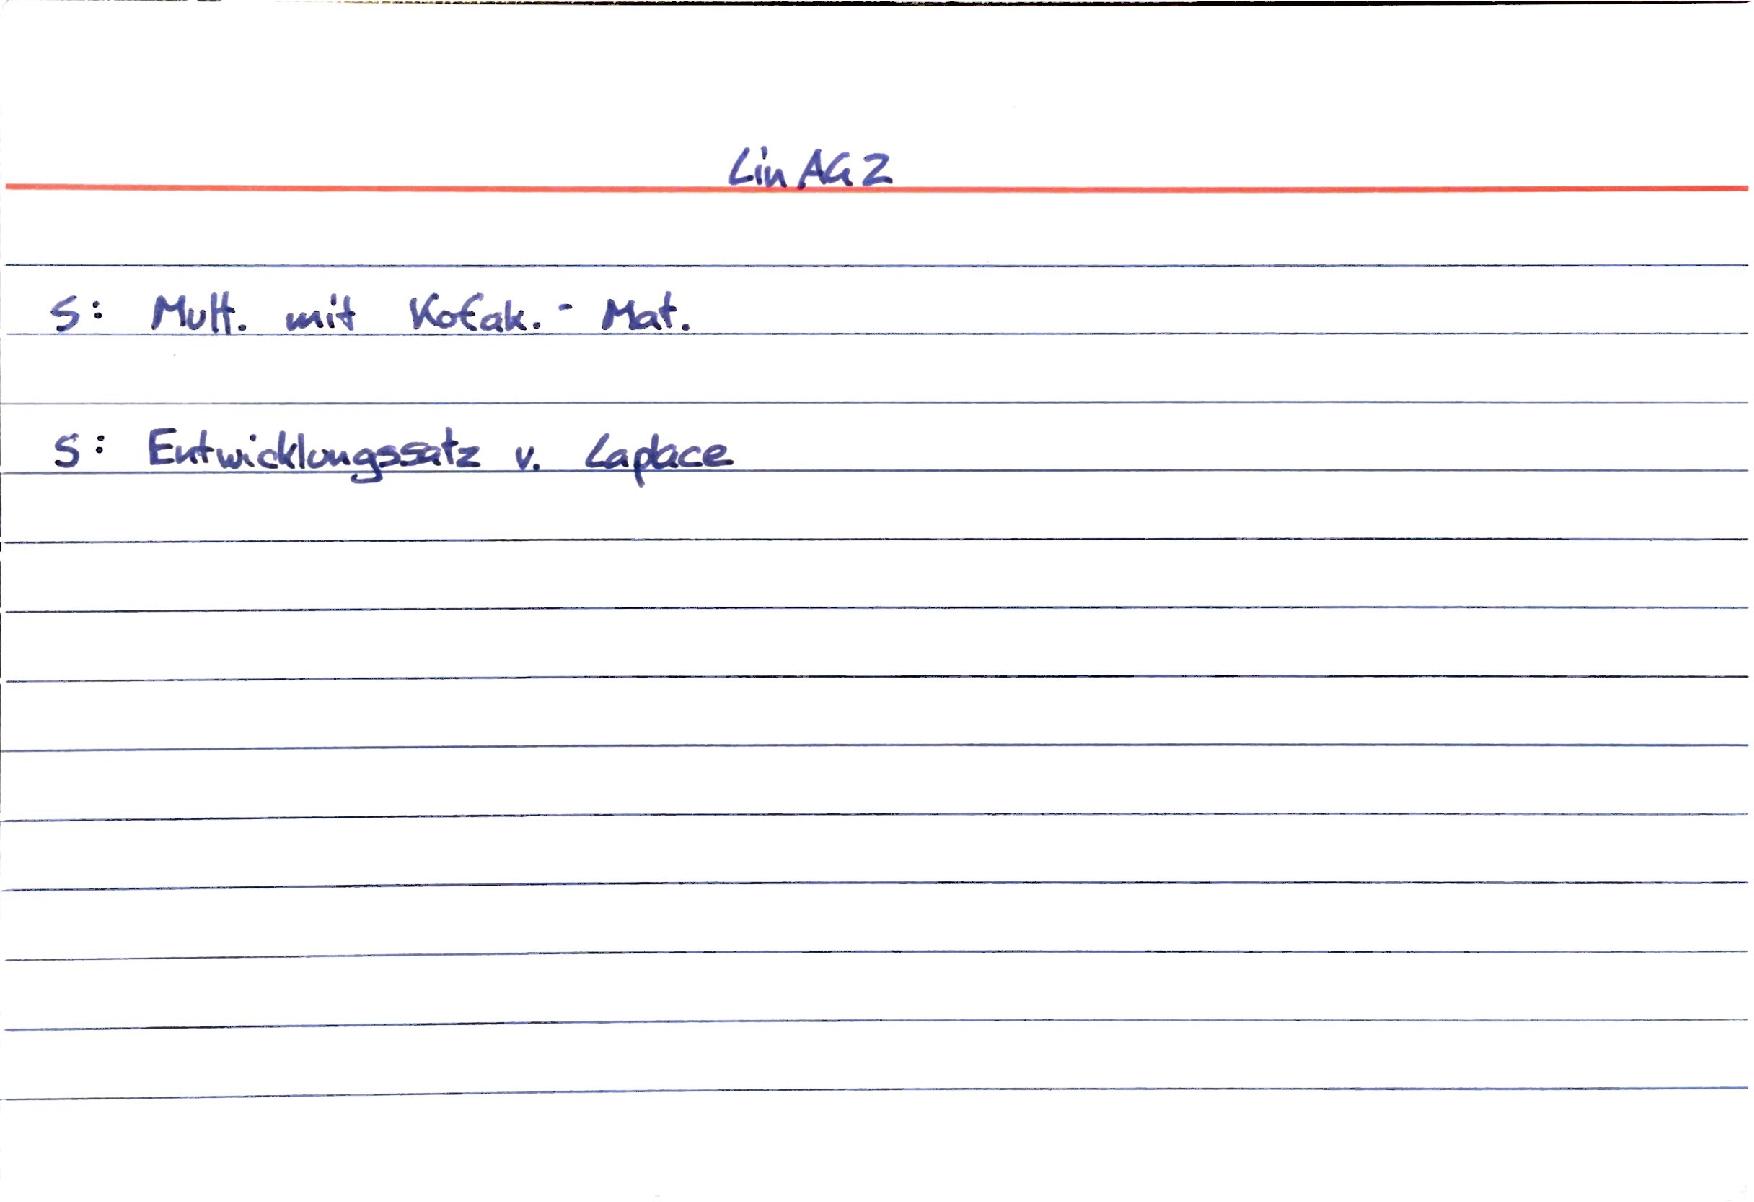 LinAG 2
S: Mult. mit Kofak.-Mat.
S: Entwicklungssatz v. Laplace